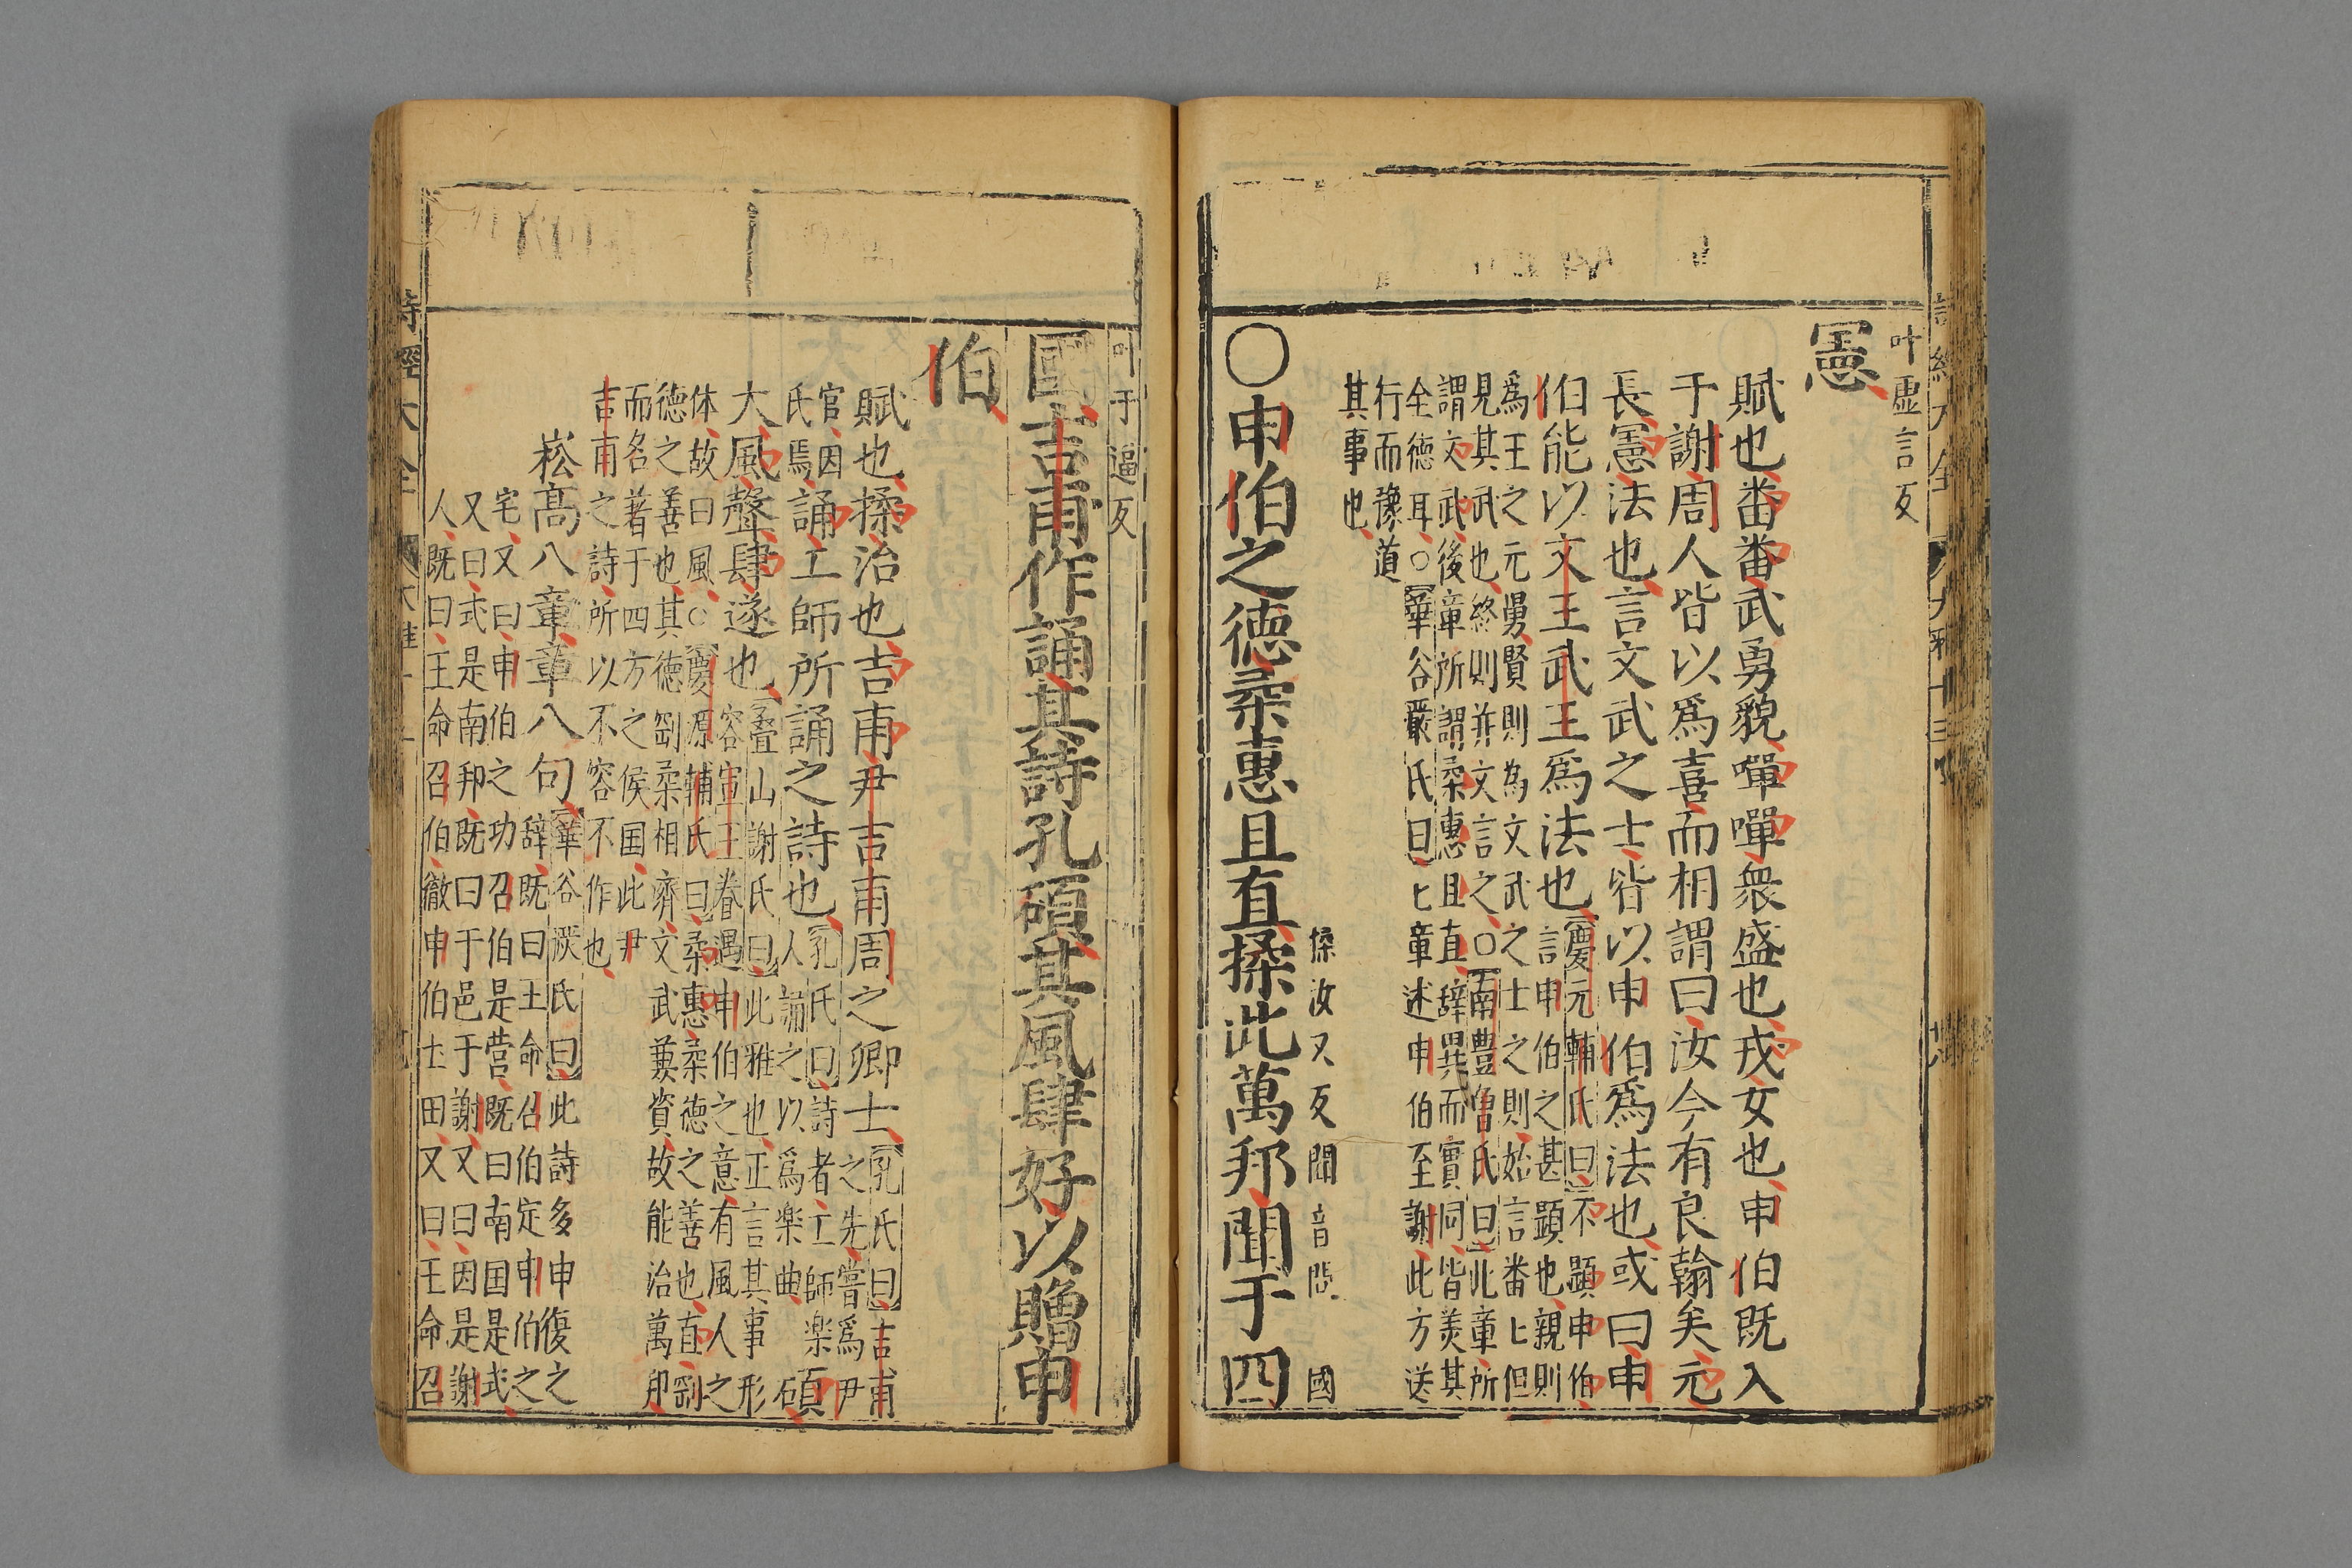 叶虛言反
憲
賦也番番武勇貌嘽嘽衆盛也戎女也申伯既入
于謝周人皆以爲喜而相謂曰汝今有良翰矣元
長憲法也言文武之士皆以申伯爲法也或曰申
伯能以文王武王爲法也
慶元輔氏曰不顯申伯
言申伯之甚顯也親則
爲王之元舅賢則為文武之士之則始言番〻但
見其武也終則并文言之○南豐曽氏曰此章所
謂文武後章所謂柔惠且直辞異而實同皆羙其
全德耳○華谷嚴氏曰七章述申伯至謝此方送
行而豫道
其事也
揉汝又反聞音問 國
○申伯之德柔惠且直揉此萬邦聞于四
叶于逼反
國吉甫作誦其詩孔碩其風肆好以贈申
伯
賦也揉治也吉甫尹吉甫周之卿士
孔氏曰吉甫
之先嘗爲尹
官因
氏焉
誦工師所誦之詩也
孔氏曰詩者工師楽
人誦之以爲楽曲
碩
大風聲肆遂也
疊山謝氏曰此雅也正言其事形
容宣王眷遇申伯之意有風人之
体故曰風○慶源輔氏曰柔惠柔德之善也直剛
德之善也其德剛柔相濟文武兼資故能治萬邦
而名著于四方之侯国此尹
吉甫之詩所以不容不作也
崧高八章章八句
華谷嚴氏曰此詩多申復之
辞既曰王命召伯定申伯之
宅又曰申伯之功召伯是营既曰南国是式
又曰式是南邦既曰于邑于謝又曰因是謝
人既曰王命召伯徹申伯土田又曰王命召
詩經大全